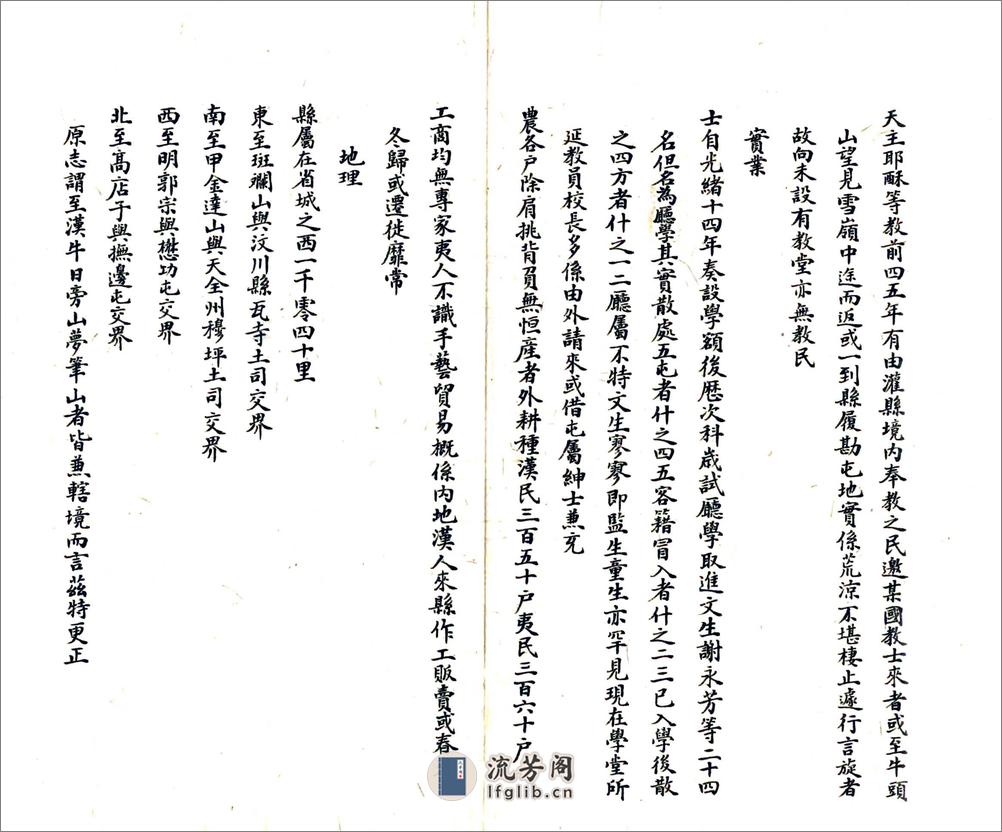 天主耶酥等教前四五年有由灌縣境内奉教之民邀某國教士來者或至牛頭
山望見雪嶺中途而返或一到縣履勘屯地實係荒涼不堪棲止遽行言旋者
故向未設有教堂亦無教民
實業
士自光緒十四年奏設學額後歷次科歲試廳學取進文生謝永芳等二十四
名但名為廳學其實散處五屯者什之四五客籍冒入者什之二三已入學後散
之四方者什之一二廳屬不特文生寥寥即監生童生亦罕見現在學堂所
延教員校長多係由外請來或借屯屬紳士兼充
農各户除肩挑背負無恒産者外耕種漢民三百五十户夷民三百六十户
工商均無專家夷人不識手藝貿易概係内地漢人來縣作工販賣或春
冬歸或遷徙靡常
地理
縣屬在省城之西一千零四十里
東至斑斕山與汶川縣瓦寺土司交界
南至甲金達山與天全州穆坪土司交界
西至明郭宗與懋功屯交界
北至髙店子與撫邊屯交界
原志謂至漢牛日旁山夢筆山者皆兼轄境而言茲特更正
流芳阁
lfglib.cn